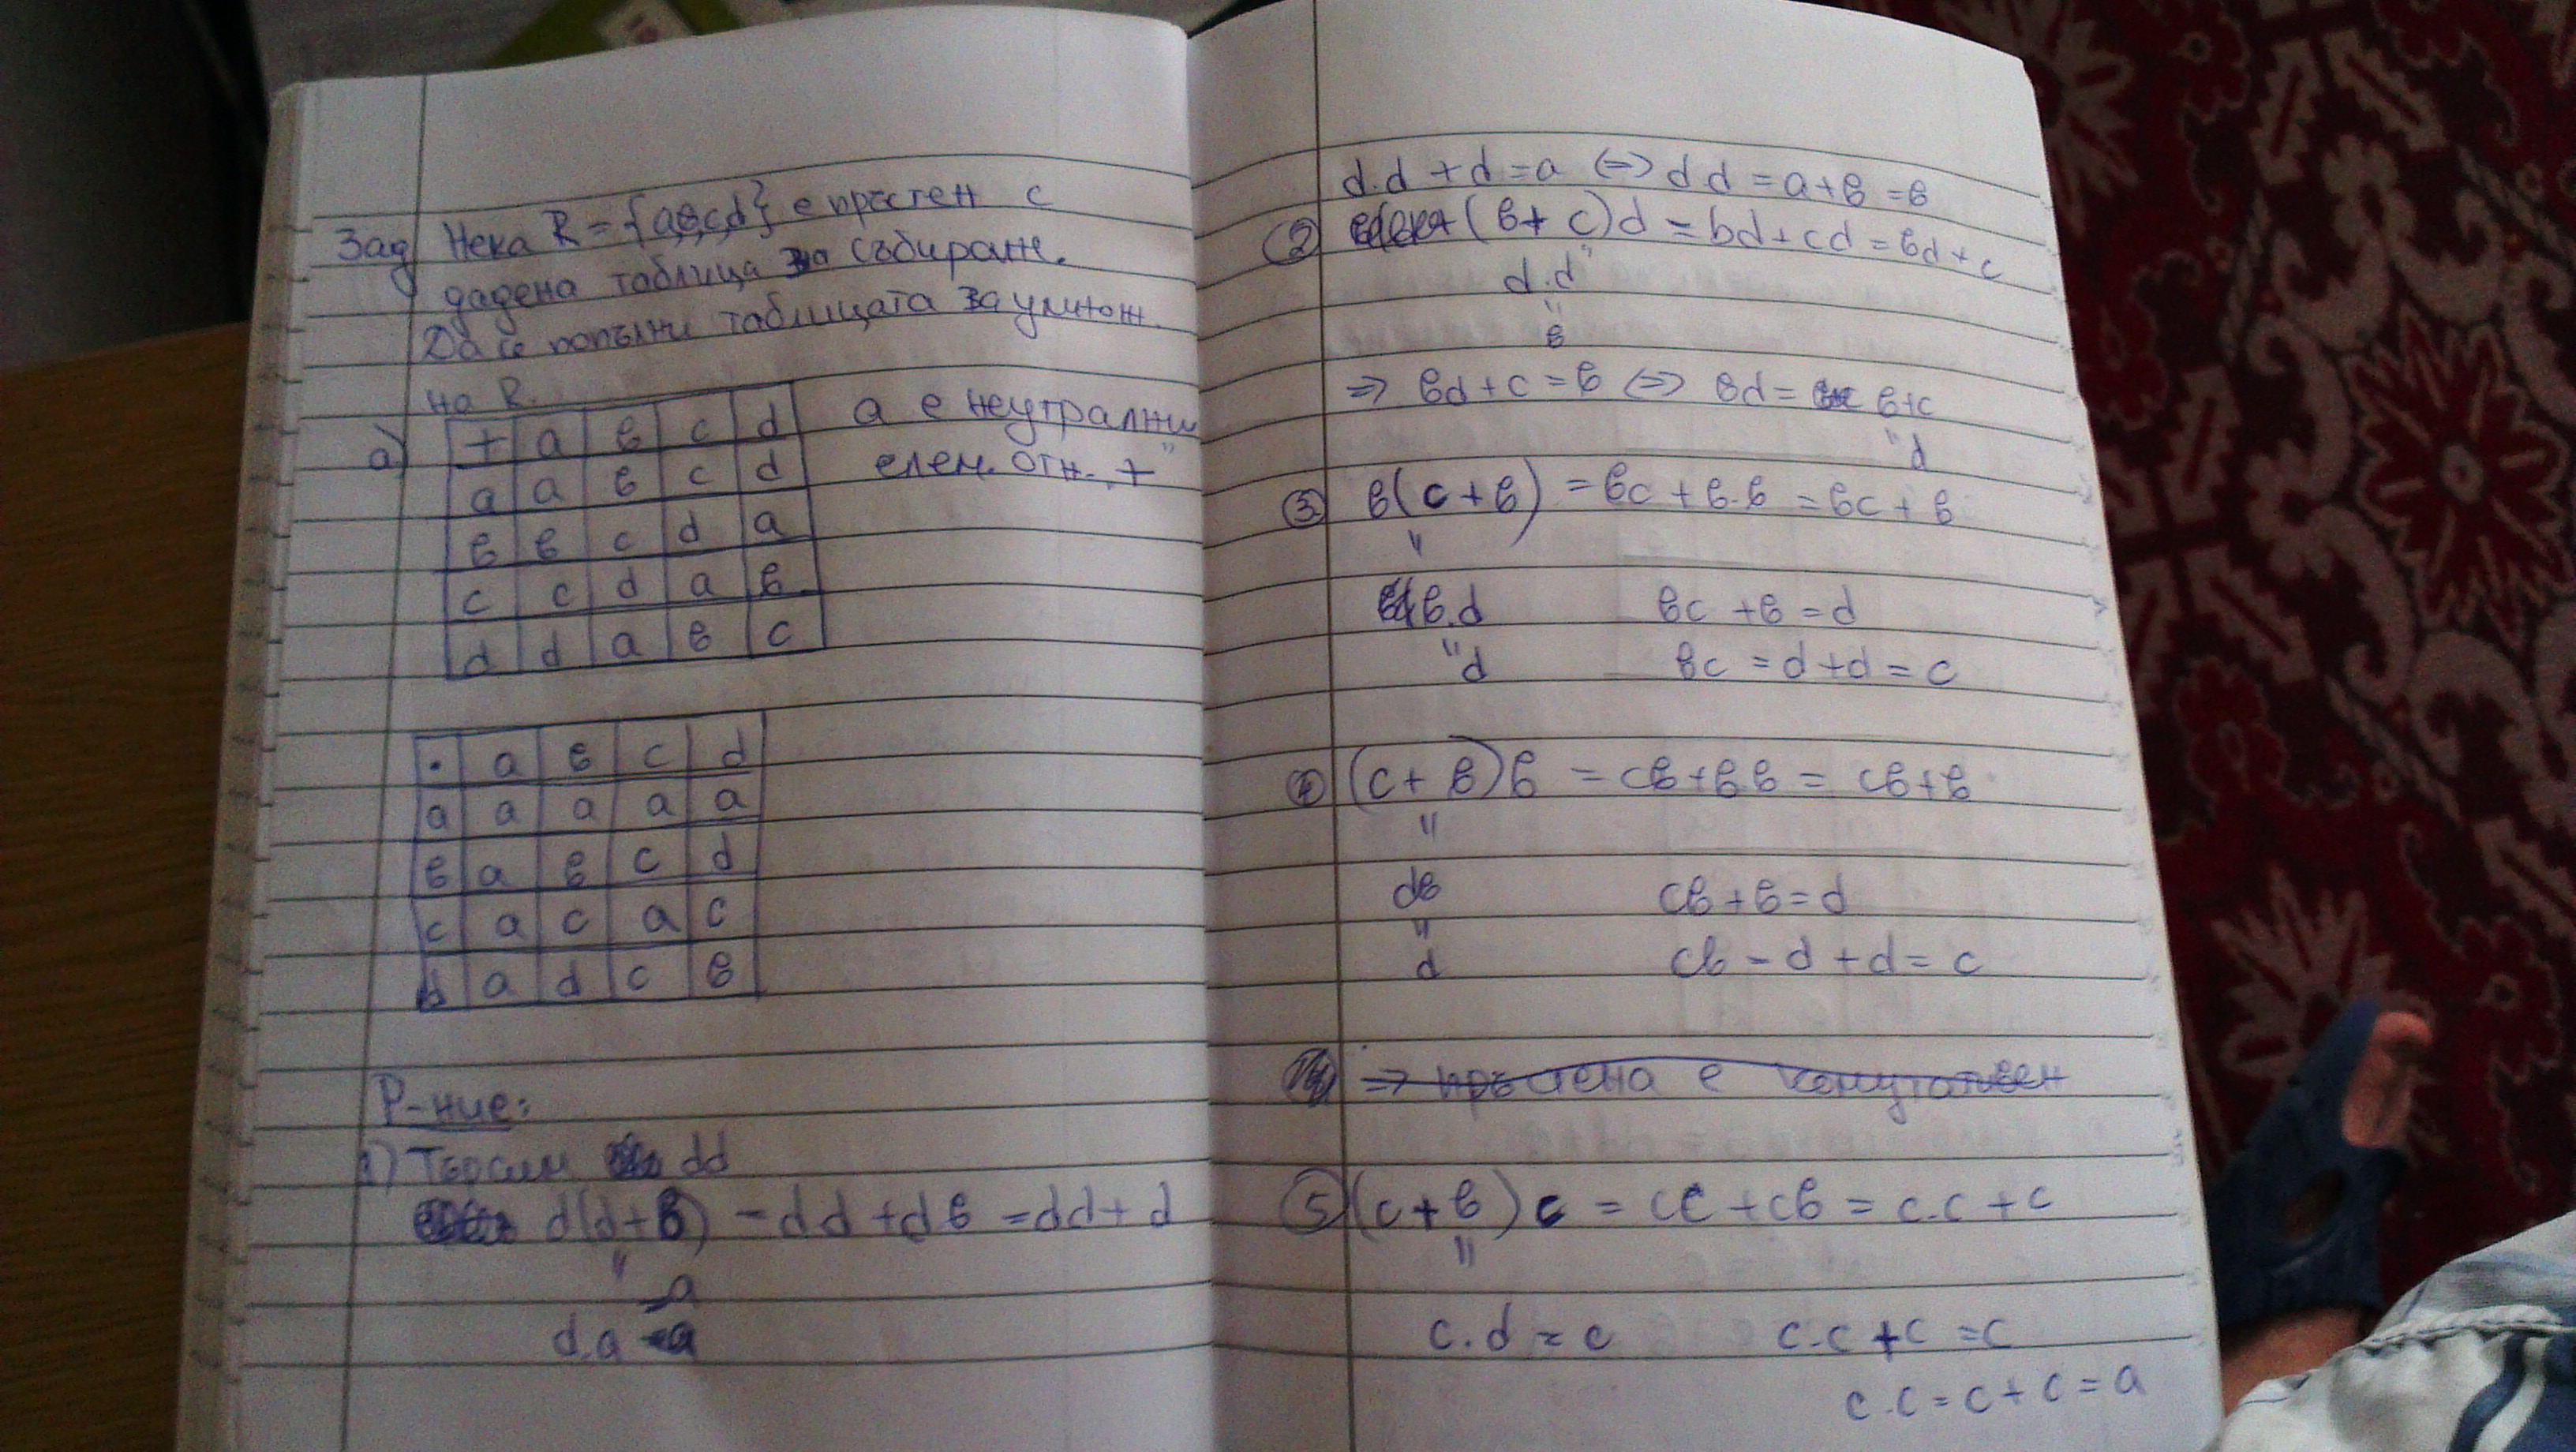 Зад Нека R = {a,в,c,d} е пръстен с
дадена таблица за събиране.
Да се попълни таблицата за умнож.
на R.
а) + a в c d
a a в c d
в в c d a
c c d a в
d d a в c
a е неутрални
елем. отн. „+"
· a в c d
a a a a a
в a в c d
c a c a c
d a d c в
Р-ние:
1) Търсим dd
d(d+в) = dd + dв = dd + d
"
=a
d.a =a
d.d + d = a <=> d d = a+в = в
② (в + c)d = bd + cd = вd + c
d.d "
"
в
=> вd + c = в <=> вd = в+c
"d
③ в(c + в) = вc + в.в = вc + в
"
в.d вc + в = d
"d вc = d + d = c
④ (c + в)в = cв + в.в = cв + в
"
dв cв + в = d
"
d cb = d + d = c
=> пръстена е комутативен
⑤ (c + в) c = cc + cв = c.c + c
"
c.d = c c.c + c = c
c.c = c + c = a